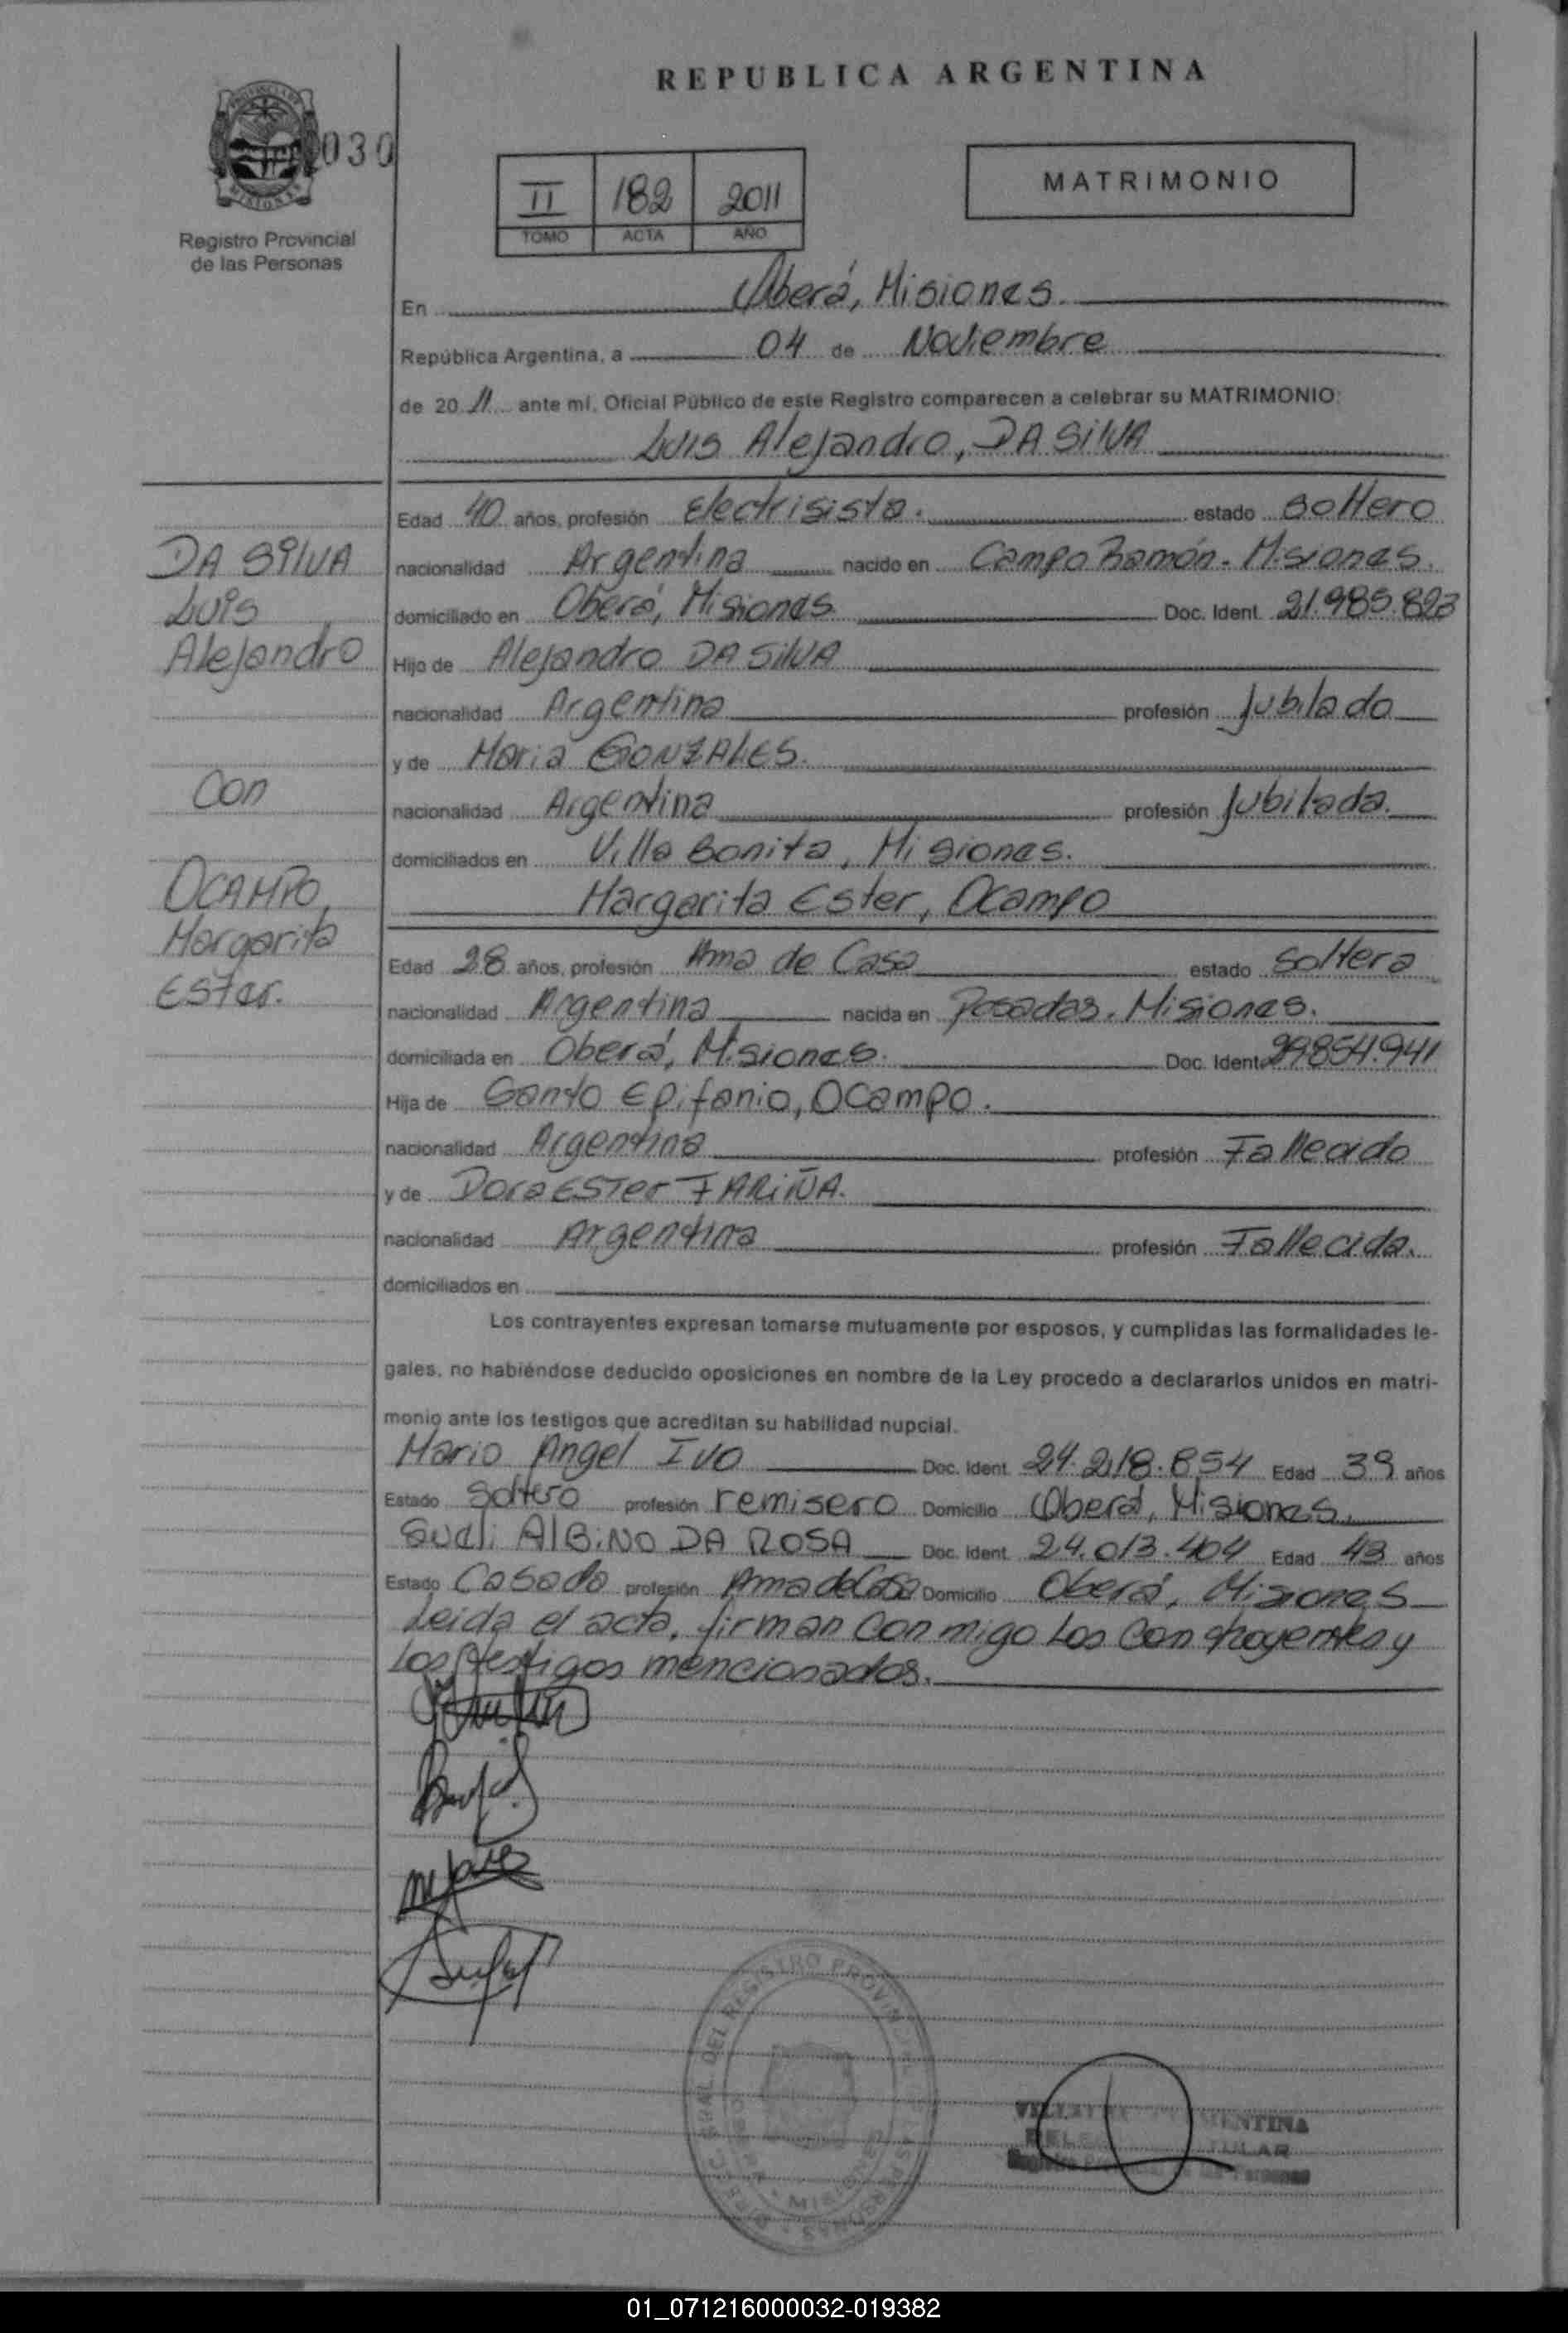 REPUBLICA ARGENTINA
030
Registro Provincial
de las Personas
II 182 2011
TOMO ACTA AÑO
MATRIMONIO
En Oberá, Misiones.
República Argentina, a 04 de Noviembre
de 20 11 ante mí, Oficial Público de este Registro comparecen a celebrar su MATRIMONIO:
Luis Alejandro, DA SilVA
DA SilVA
Luis
Alejandro
Con
OCAMPO,
Margarita
Ester.
Edad 40 años, profesión Electrisista. estado Soltero
nacionalidad Argentina nacido en Campo Ramón - Misiones.
domiciliado en Oberá, Misiones Doc. Ident. 21.985.823
Hijo de Alejandro DA SilVA
nacionalidad Argentina profesión Jubilado
y de Maria GONZALES.
nacionalidad Argentina profesión Jubilada.
domiciliados en Villa Bonita, Misiones.
Margarita Ester, Ocampo
Edad 28 años, profesión Ama de Casa estado Soltera
nacionalidad Argentina nacida en Posadas, Misiones.
domiciliada en Oberá, Misiones. Doc. Ident. 29854.941
Hija de Santo Epifanio, OCampo.
nacionalidad Argentina profesión Fallecido
y de Dora ESTer FARiÑA.
nacionalidad Argentina profesión Fallecida.
domiciliados en
Los contrayentes expresan tomarse mutuamente por esposos, y cumplidas las formalidades le-
gales, no habiéndose deducido oposiciones en nombre de la Ley procedo a declararlos unidos en matri-
monio ante los testigos que acreditan su habilidad nupcial.
Mario Angel IVO Doc. Ident. 24.218.854 Edad 39 años
Estado Soltero profesión remisero Domicilio Oberá, Misiones.
Sueli AlBiNO DA ROSA Doc. Ident. 24.013.404 Edad 43 años
Estado Casada profesión Ama de Casa Domicilio Oberá, Misiones
Leida el acta, firman con migo los Contrayentes y
Los testigos mencionados.
DEL REGISTRO PROVINCIAL
MISIONES
01_071216000032-019382